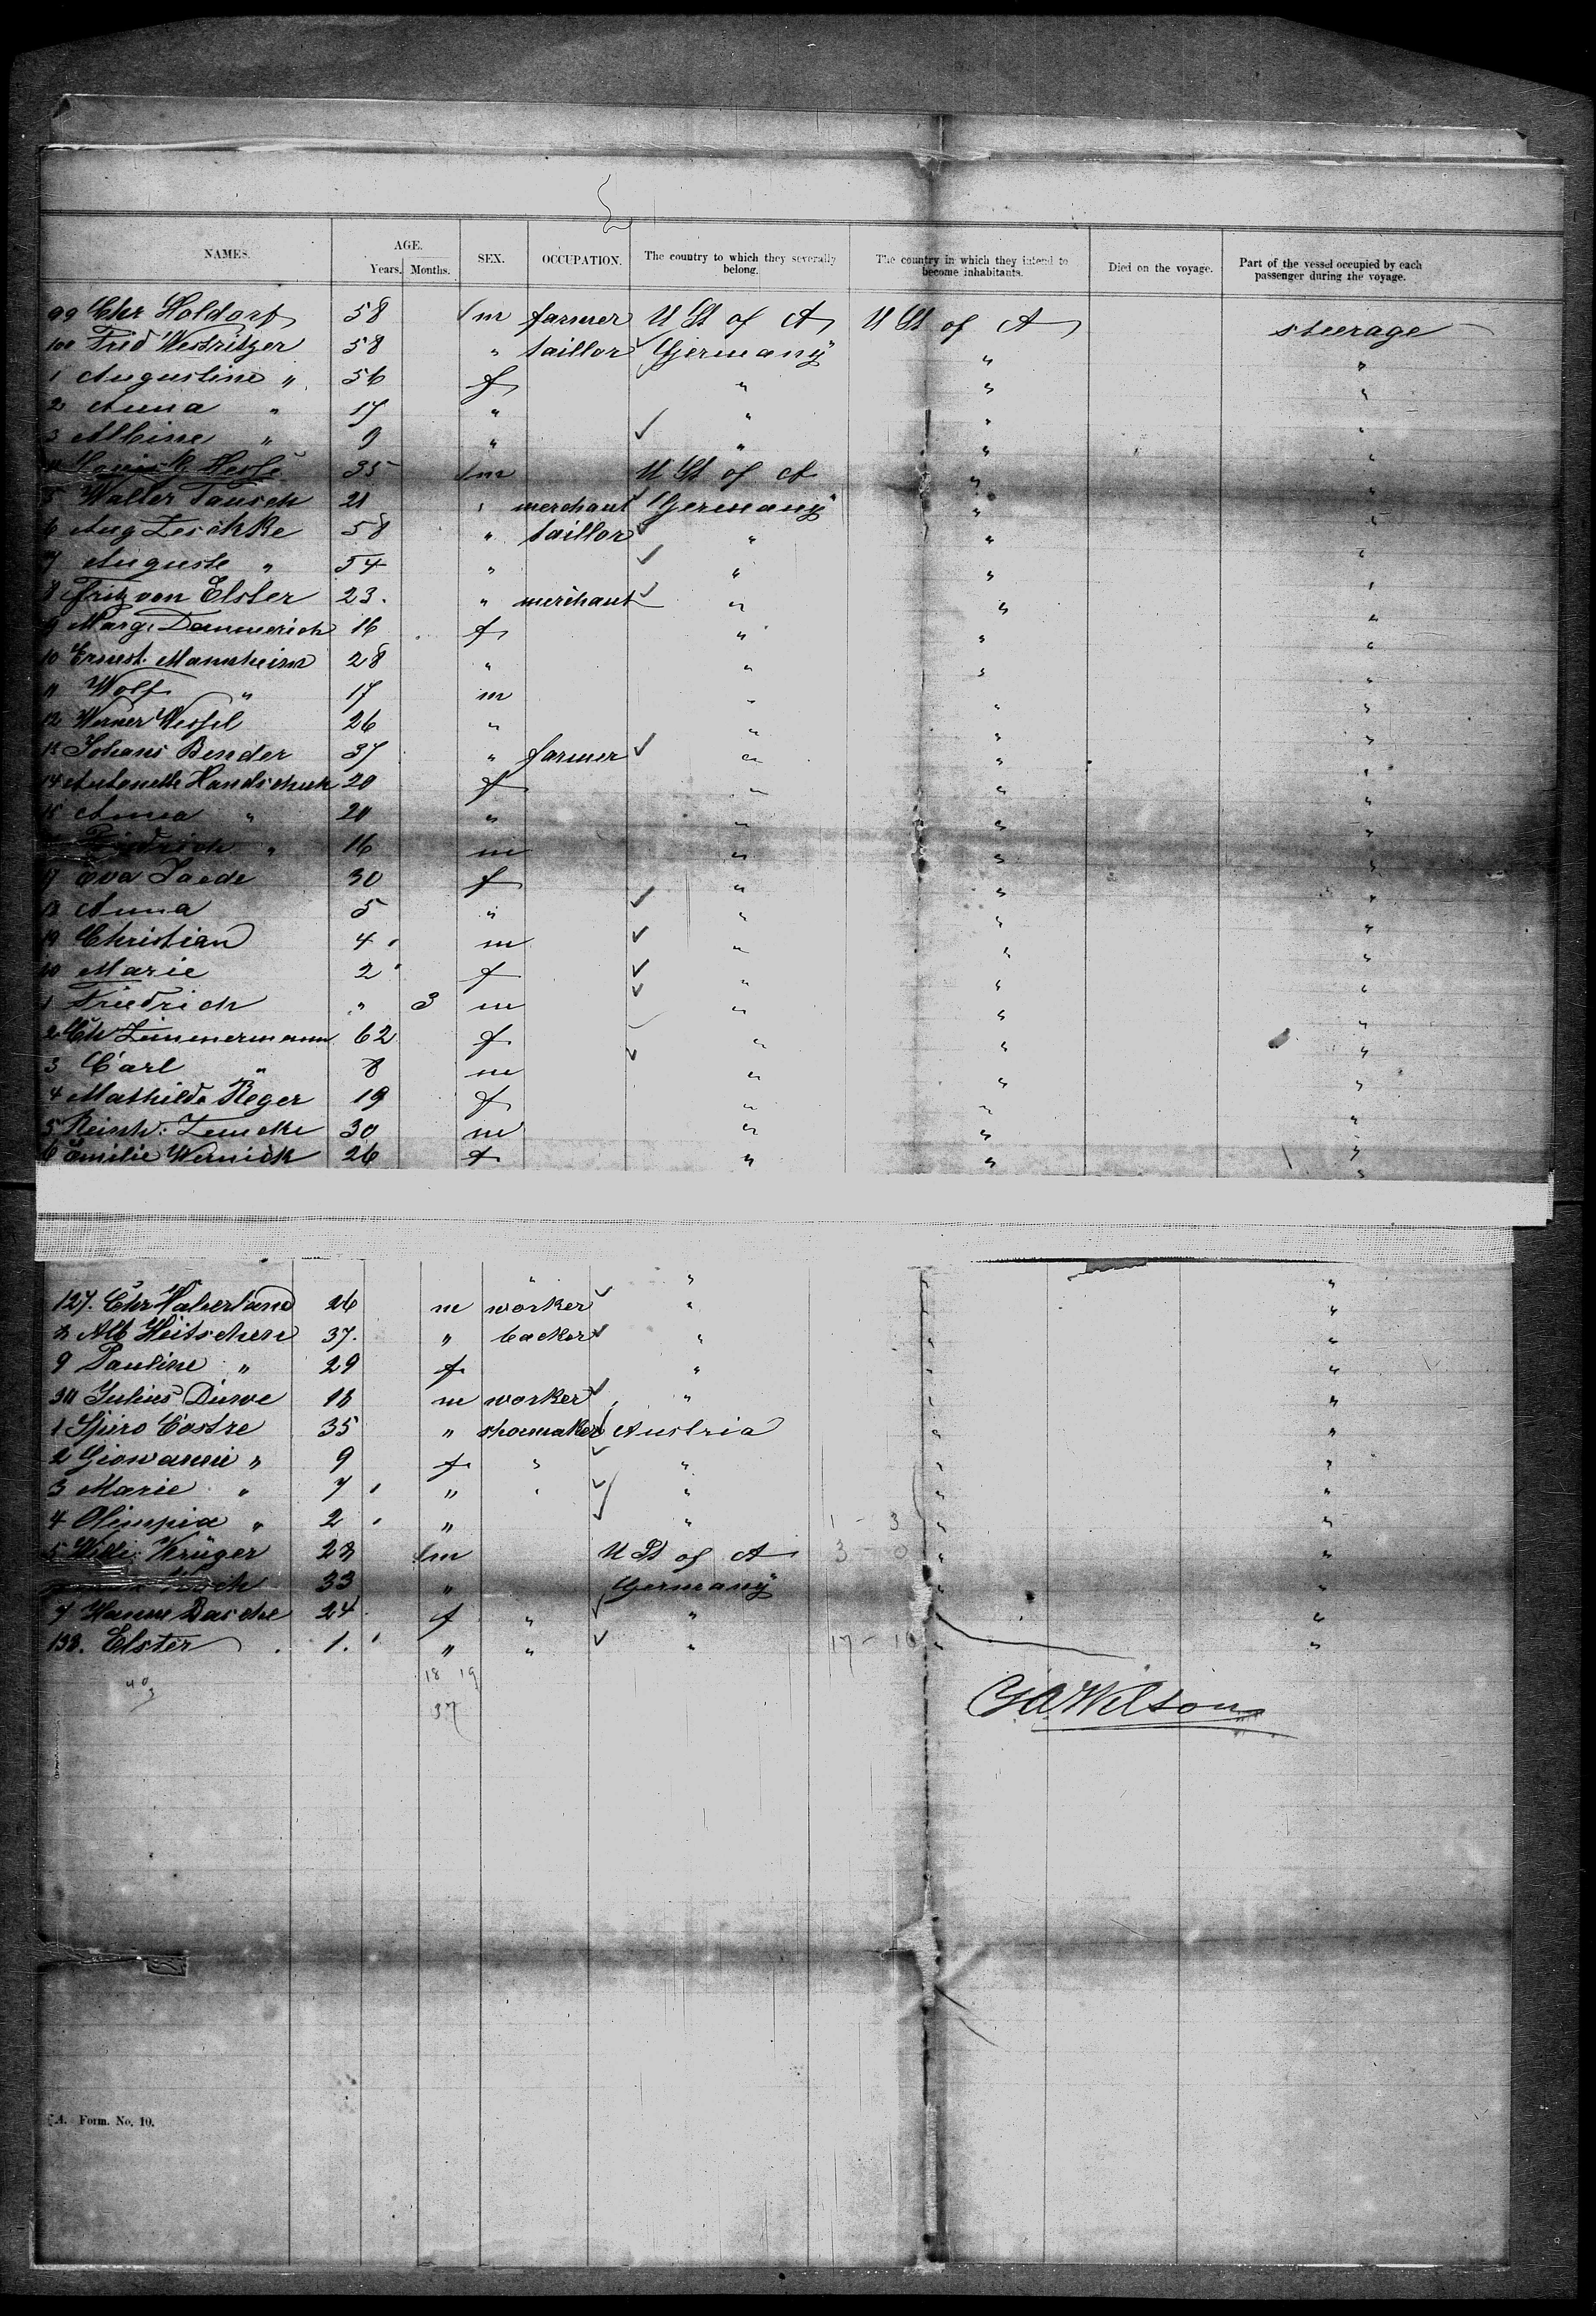 NAMES. AGE. Years. Months. SEX. OCCUPATION. The country to which they severally belong. The country in which they intend to become inhabitants. Died on the voyage. Part of the vessel occupied by each passenger during the voyage.
99 Chr Holdorf 58 m farmer U St of A U St of A steerage
100 Fred Westritzer 58 " taillor Germany " "
1 Augustine " 56 f " " "
2 Anna " 17 " " " "
3 Albine " 9 " " " "
Hesse 35 m U St of A " "
5 Walter Tausch 21 " merchant Germany " "
6 Aug Zeschke 58 " taillor " " "
7 Auguste " 54 " " " "
8 Fritz von Elster 23. " merchant " " "
9 Marg. Dammerich 16 f " " "
10 Ernest. Mannheim 28 " " " "
11 Wolf " 17 m " " "
12 Werner Wessel 26 " " " "
13 Johans Bender 37 " farmer " " "
14 Antonette Handschuh 20 f " " "
15 Anna " 20 " " " "
Friedrich " 16 m " " "
17 Eva 30 f " " "
18 Anna 5 " " " "
19 Christian 4 m " " "
20 Marie 2 f " " "
1 Friedrich " 3 m " " "
2 Ch Zimmermann 62 f " " "
3 Carl " 8 m " " "
4 Mathilde Reger 19 f " " "
5 Reinh. 30 m " " "
6 Emilie Wernick 26 f " " "
127. Chr Haberland 26 m worker " " "
8 Alb 37. " backer " " "
9 Pauline " 29 f " " "
30 Julius Duwe 18 m worker " " "
1 Spiro Costre 35 " shoemaker Austria " "
2 Giowanni " 9 f " " " "
3 Marie " 7 " " " " "
4 Olimpia " 2 " " 1 - 3 " "
5 Krüger 23 m U St of A 3 - 0 " "
33 " Germany " "
7 Hanne Dasche 24 f " " " "
138. Elster 1. " " " 17 - 16 " "
18 19
37
G.A. Wilson
A. Form. No. 10.